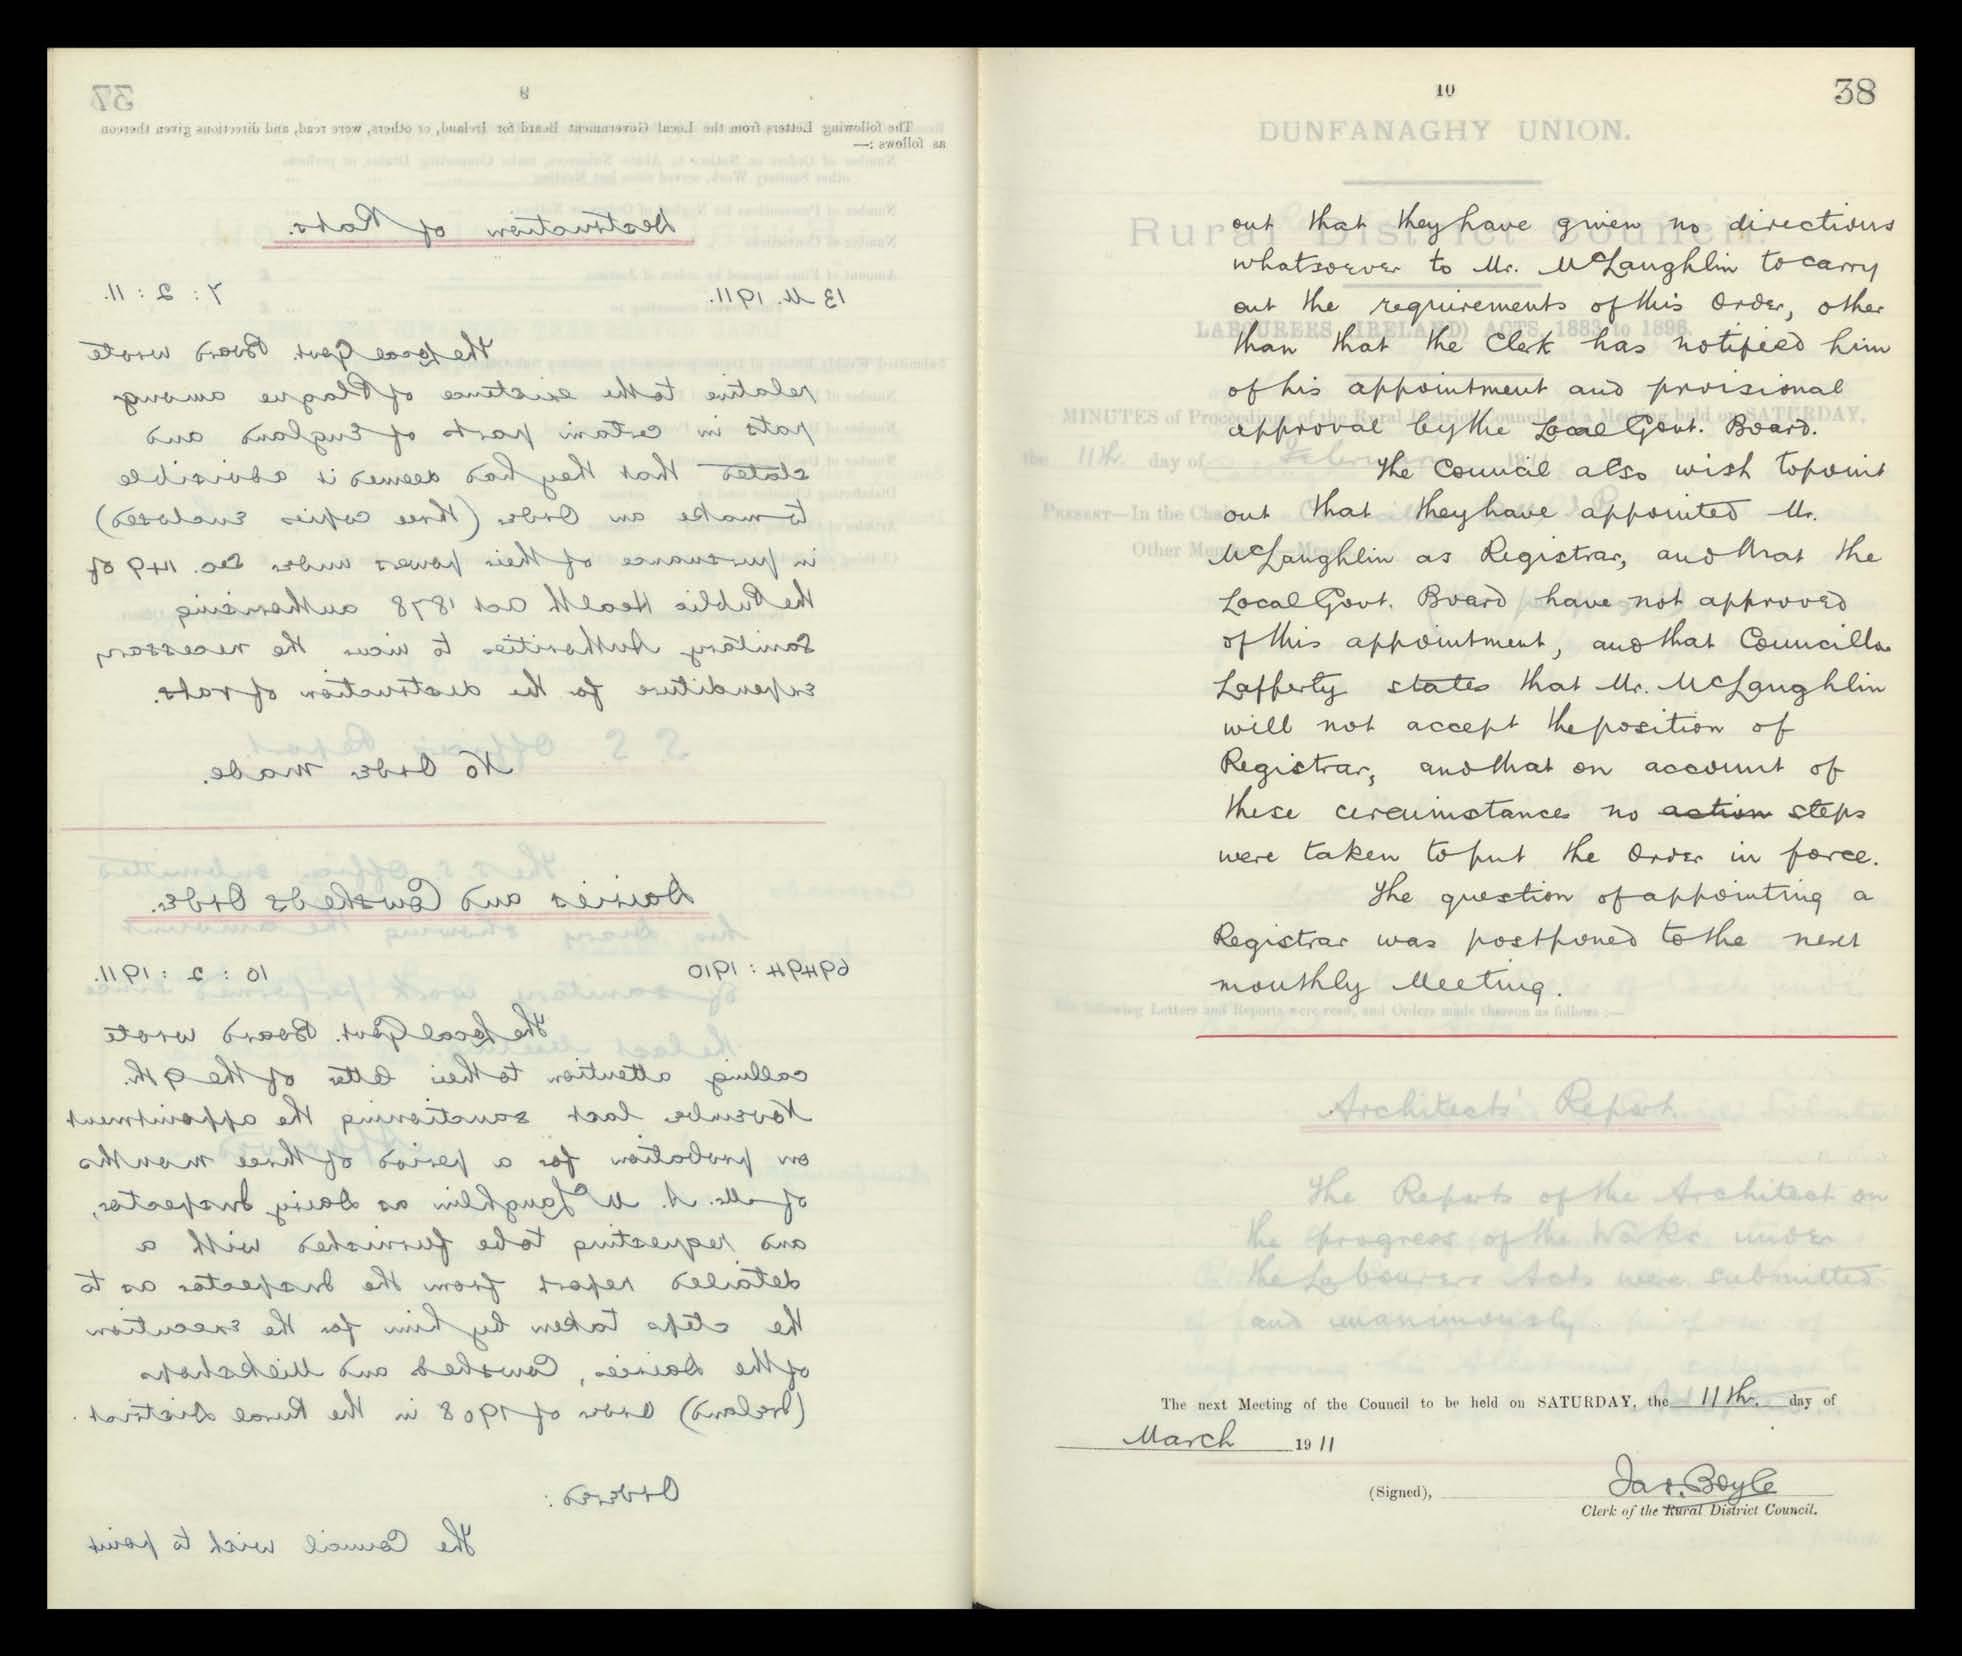 37
9
The following Letters from the Local Government Board for Ireland, or others, were read, and directions given thereon
as follows :—
Destruction of Rats.
13 M. 1911. 7 : 2 : 11.
The Local Govt. Board wrote
relative to the existence of Plague among
rats in certain parts of England and
states that they had deemed it advisible
to make an Order (three copies enclosed)
in pursuance of their powers under Sec. 149 of
the Public Health Act 1878 authorising
Sanitary Authorities to incur the necessary
expenditure for the destruction of rats.
No Order made.
Dairies and Cowsheds Order.
69494 : 1910 10 : 2 : 1911.
The Local Govt. Board wrote
calling attention to their letter of the 9th.
November last sanctioning the appointment
on probation for a period of three months
of Mr. A. McLaughlin as Dairy Inspector,
and requesting to be furnished with a
detailed report from the Inspector as to
the steps taken by him for the execution
of the Dairies, Cowshed and Milkshops
(Ireland) Order of 1908 in the Rural District.
Ordered :
The Council wish to point
10
38
DUNFANAGHY UNION.
Rural District Council.
LABOURERS (IRELAND) ACTS, 1883 to 1896.
MINUTES of Proceedings of the Rural District Council, at a Meeting held on SATURDAY,
the 11th. day of February
PRESENT—In the Chair,
out that they have given no directions
whatsoever to Mr. McLaughlin to carry
out the requirements of this Order, other
than that the Clerk has notified him
of his appointment and provisional
approval by the Local Govt. Board.
The Council also wish to point
out that they have appointed Mr.
McLaughlin as Registrar, and that the
Local Govt. Board have not approved
of this appointment, and that Councillor
Lafferty states that Mr. McLaughlin
will not accept the position of
Registrar, and that on account of
these circumstances no action steps
were taken to put the Order in force.
The question of appointing a
Registrar was postponed to the next
monthly Meeting.
The following Letters and Reports were read, and Orders made thereon as follows :—
Architects' Report.
The Reports of the Architect on
the progress of the Works under
the Labourers Acts were submitted
and unanimously
The next Meeting of the Council to be held on SATURDAY, the 11th. day of
March 1911
(Signed), Jas. Boyle
Clerk of the Rural District Council.